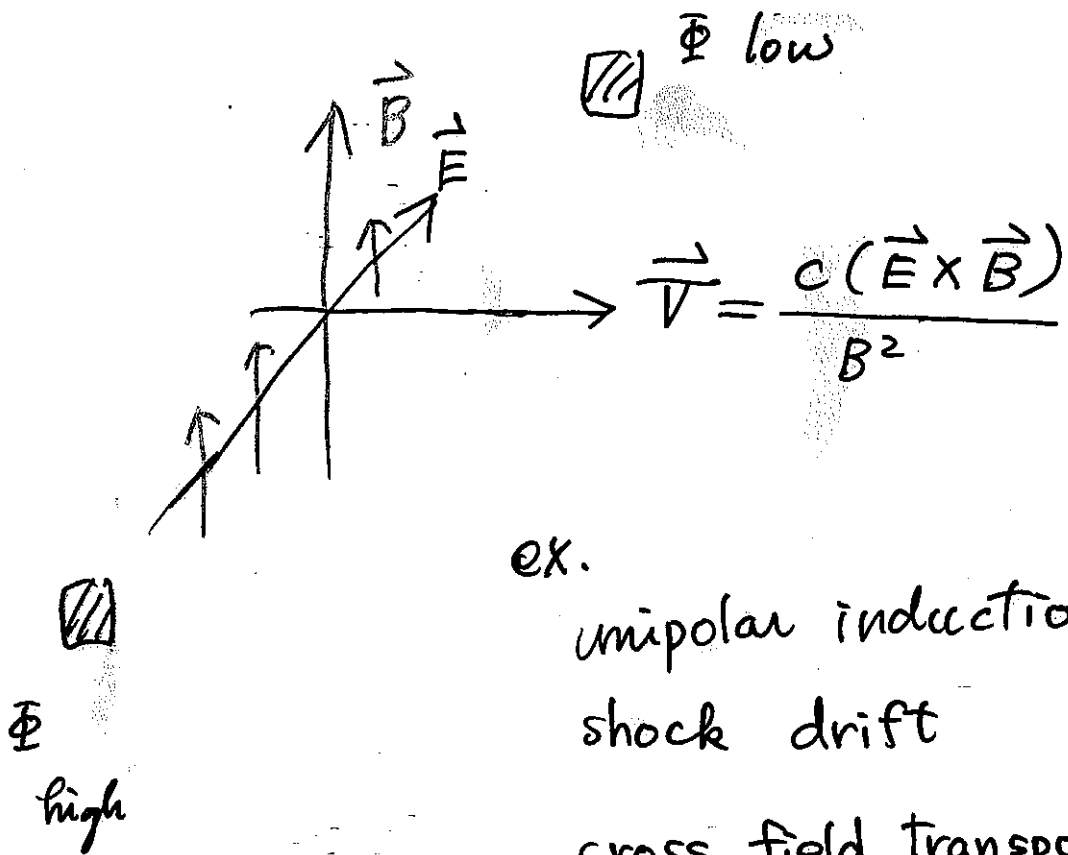 Φ low
B⃗
E⃗
V⃗ = c(E⃗ × B⃗) / B²
ex.
unipolar inductio
shock drift
Φ
high
cross field transpo